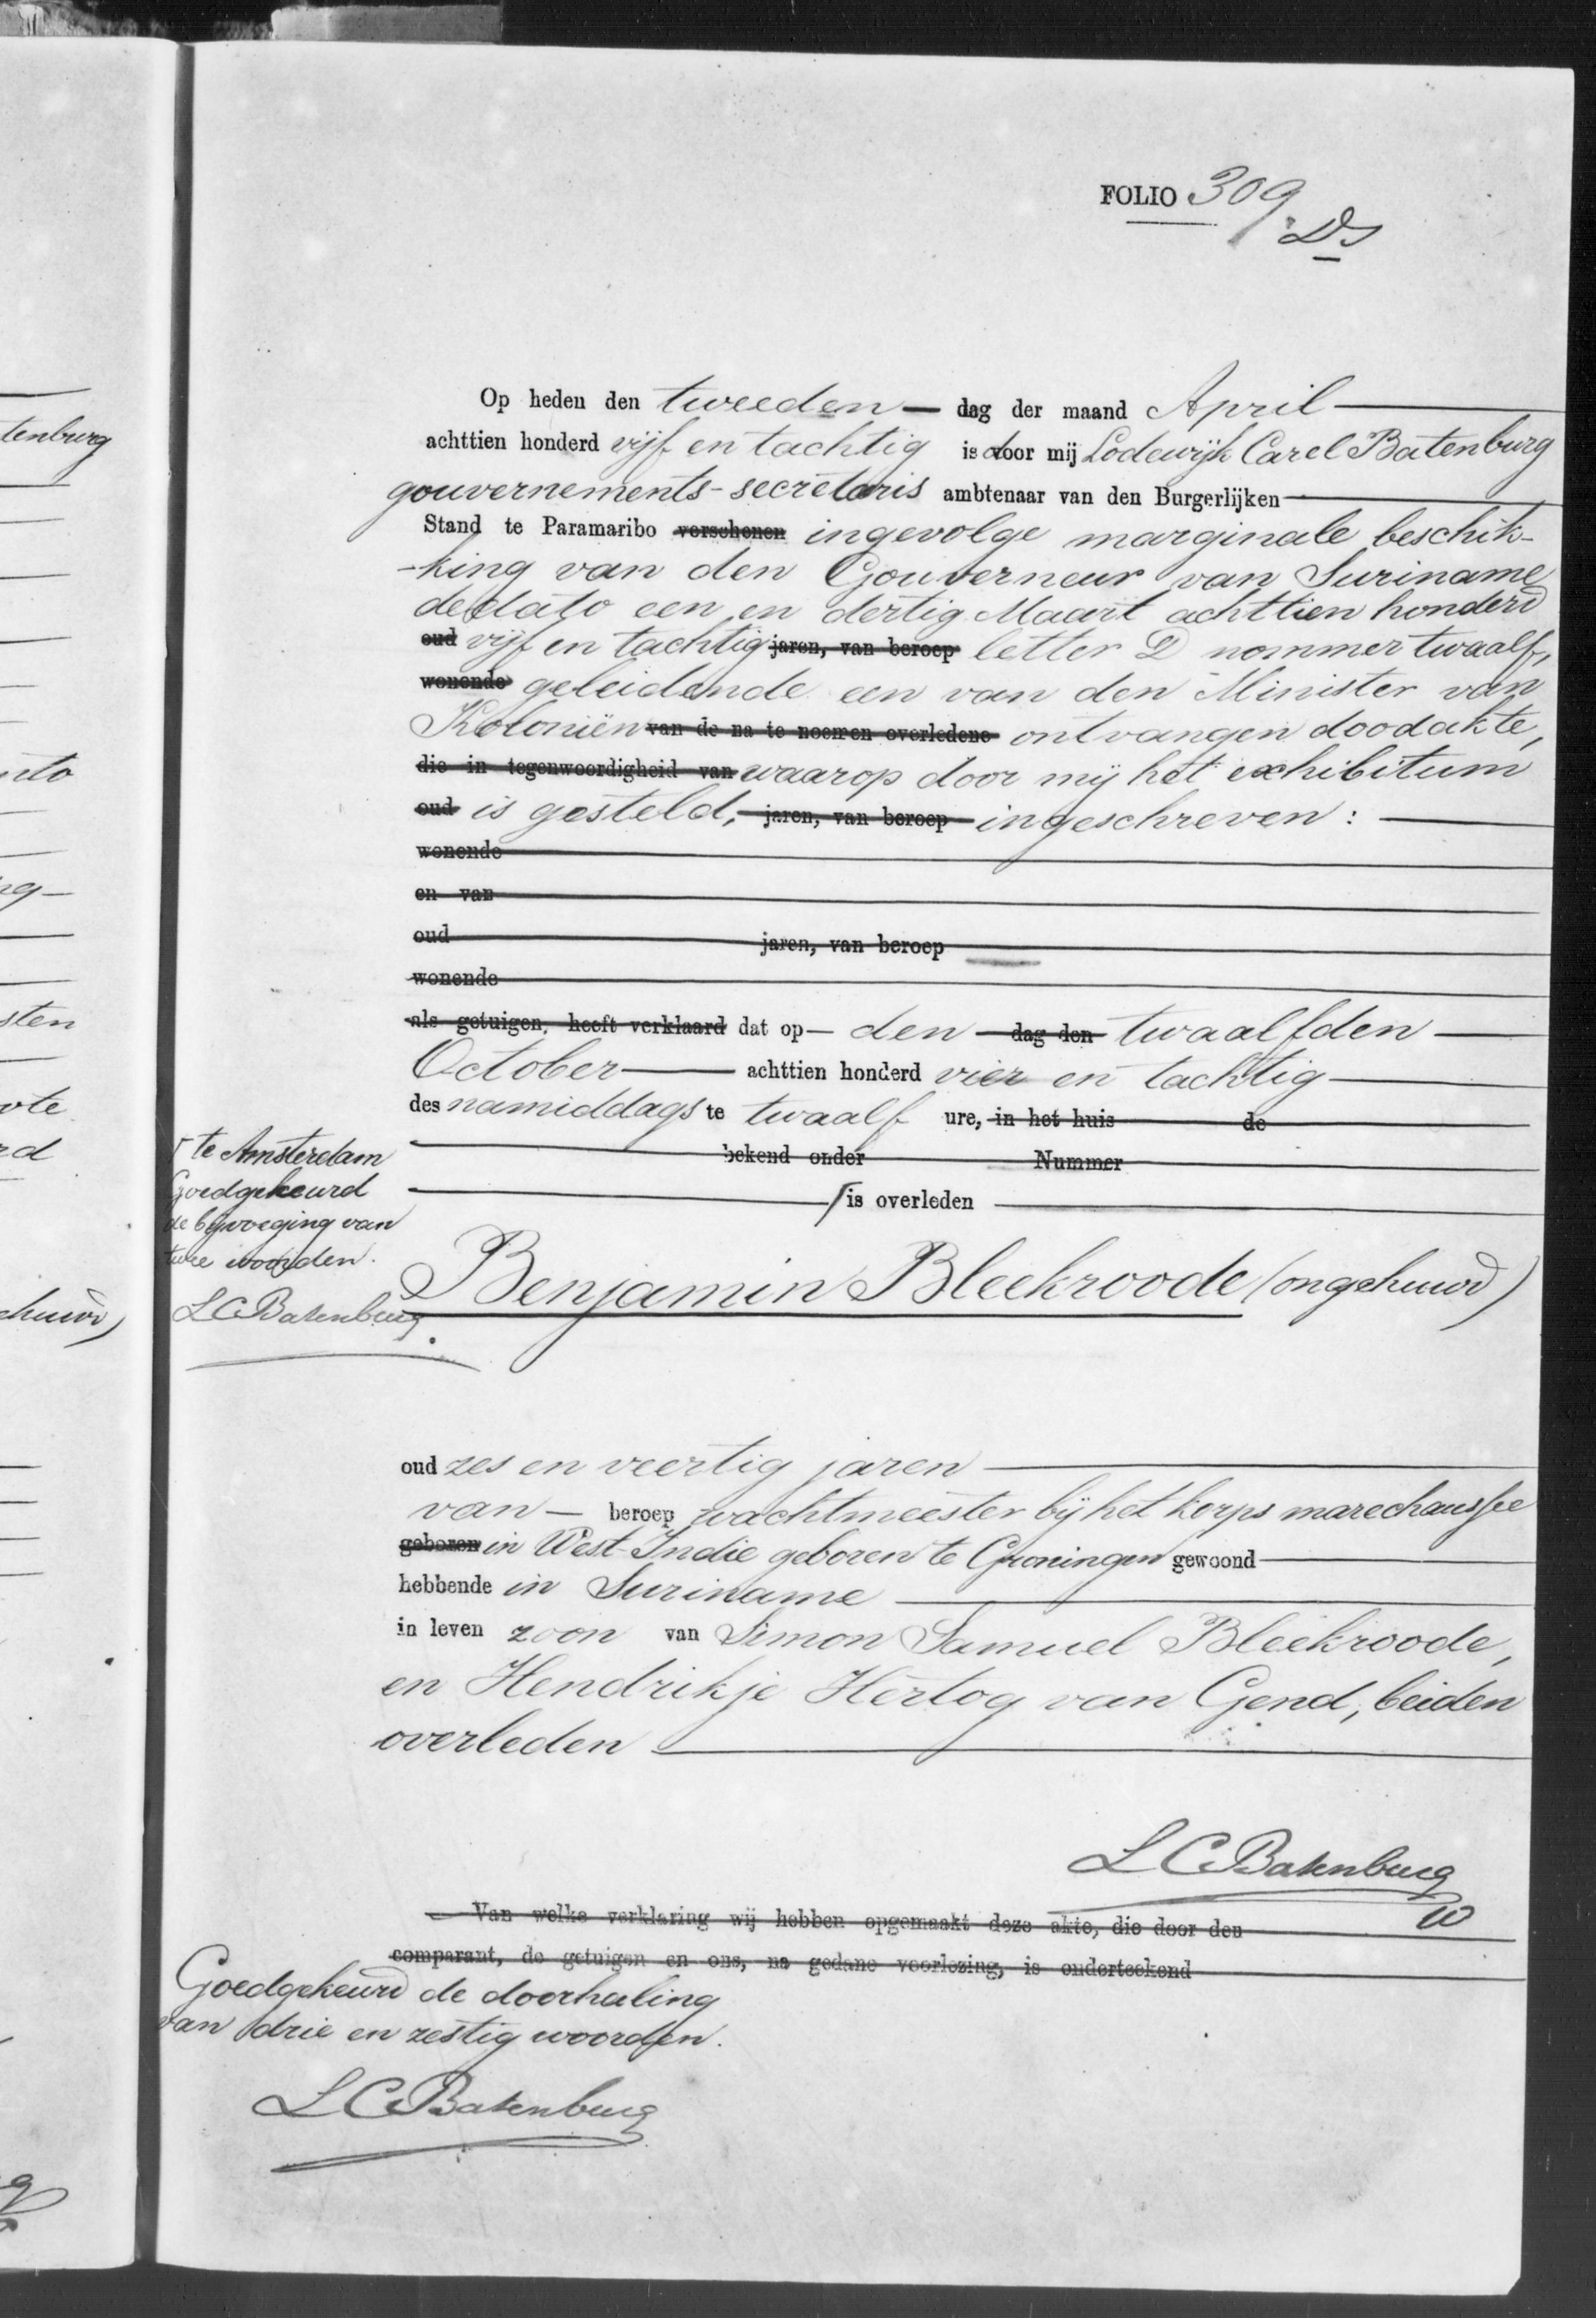 FOLIO 309
Op heden den tweeden dag der maand April
achttien honderd vijf en tachtig is door mij Lodewijk Carel Batenburg
gouvernements-secretaris ambtenaar van den Burgerlijken
Stand te Paramaribo verschenen ingevolge marginale beschik-
-king van den Gouverneur van Suriname
de dato een en dertig Maart achttien honderd
oud vijf en tachtig jaren, van beroep letter D nommer twaalf,
wonende geleidende een van den Minister van
Koloniën van de na te noemen overledene ontvangen doodakte,
die in tegenwoordigheid van waarop door mij het exhibitum
oud is gesteld, jaren, van beroep ingeschreven:
wonende
en van
oud jaren, van beroep
wonende
als getuigen, heeft verklaard dat op den dag den twaalfden
October achttien honderd vier en tachtig
des namiddags te twaalf ure, in het huis de
bekend onder Nummer
is overleden
te Amsterdam
Goedgekeurd
de bijvoeging van
twee woorden.
LC Batenburg
Benjamin Bleekroode (ongehuwd)
oud zes en veertig jaren
van beroep wachtmeester bij het korps marechaussee
geboren in West-Indie geboren te Groningen gewoond
hebbende in Suriname
in leven zoon van Simon Samuel Bleekroode,
en Hendrikje Hertog van Gend, beiden
overleden
LC Batenburg
Van welke verklaring wij hebben opgemaakt deze akte, die door den
comparant, de getuigen en ons, na gedane voorlezing, is onderteekend
Goedgekeurd de doorhaling
van drie en zestig woorden.
LC Batenburg